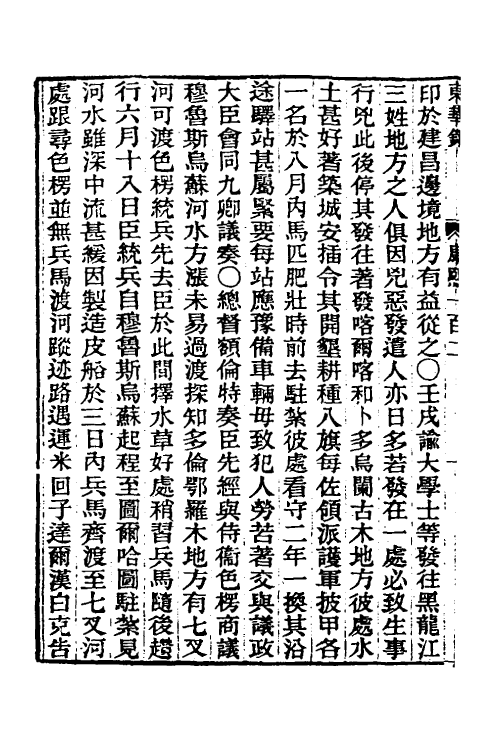 東華錄 康熙一百二
印於建昌邊境地方有益從之○壬戌諭大學士等發往黑龍江
三姓地方之人俱因兇惡發遣人亦日多若發在一處必致生事
行兇此後停其發往著發喀爾喀和卜多烏闌古木地方彼處水
土甚好著築城安插令其開墾耕種八旗每佐領派護軍披甲各
一名於八月內馬匹肥壯時前去駐紮彼處看守二年一換其沿
途驛站甚屬緊要每站應豫備車輛毋致犯人勞苦著交與議政
大臣會同九卿議奏○總督額倫特奏臣先經與侍衞色楞商議
穆魯斯烏蘇河水方漲未易過渡探知多倫鄂羅木地方有七叉
河可渡色楞統兵先去臣於此間擇水草好處稍習兵馬隨後趲
行六月十八日臣統兵自穆魯斯烏蘇起程至圖爾哈圖駐紮見
河水雖深中流甚緩因製造皮船於三日內兵馬齊渡至七叉河
處跟尋色楞並無兵馬渡河蹤迹路遇運米回子達爾漢白克告